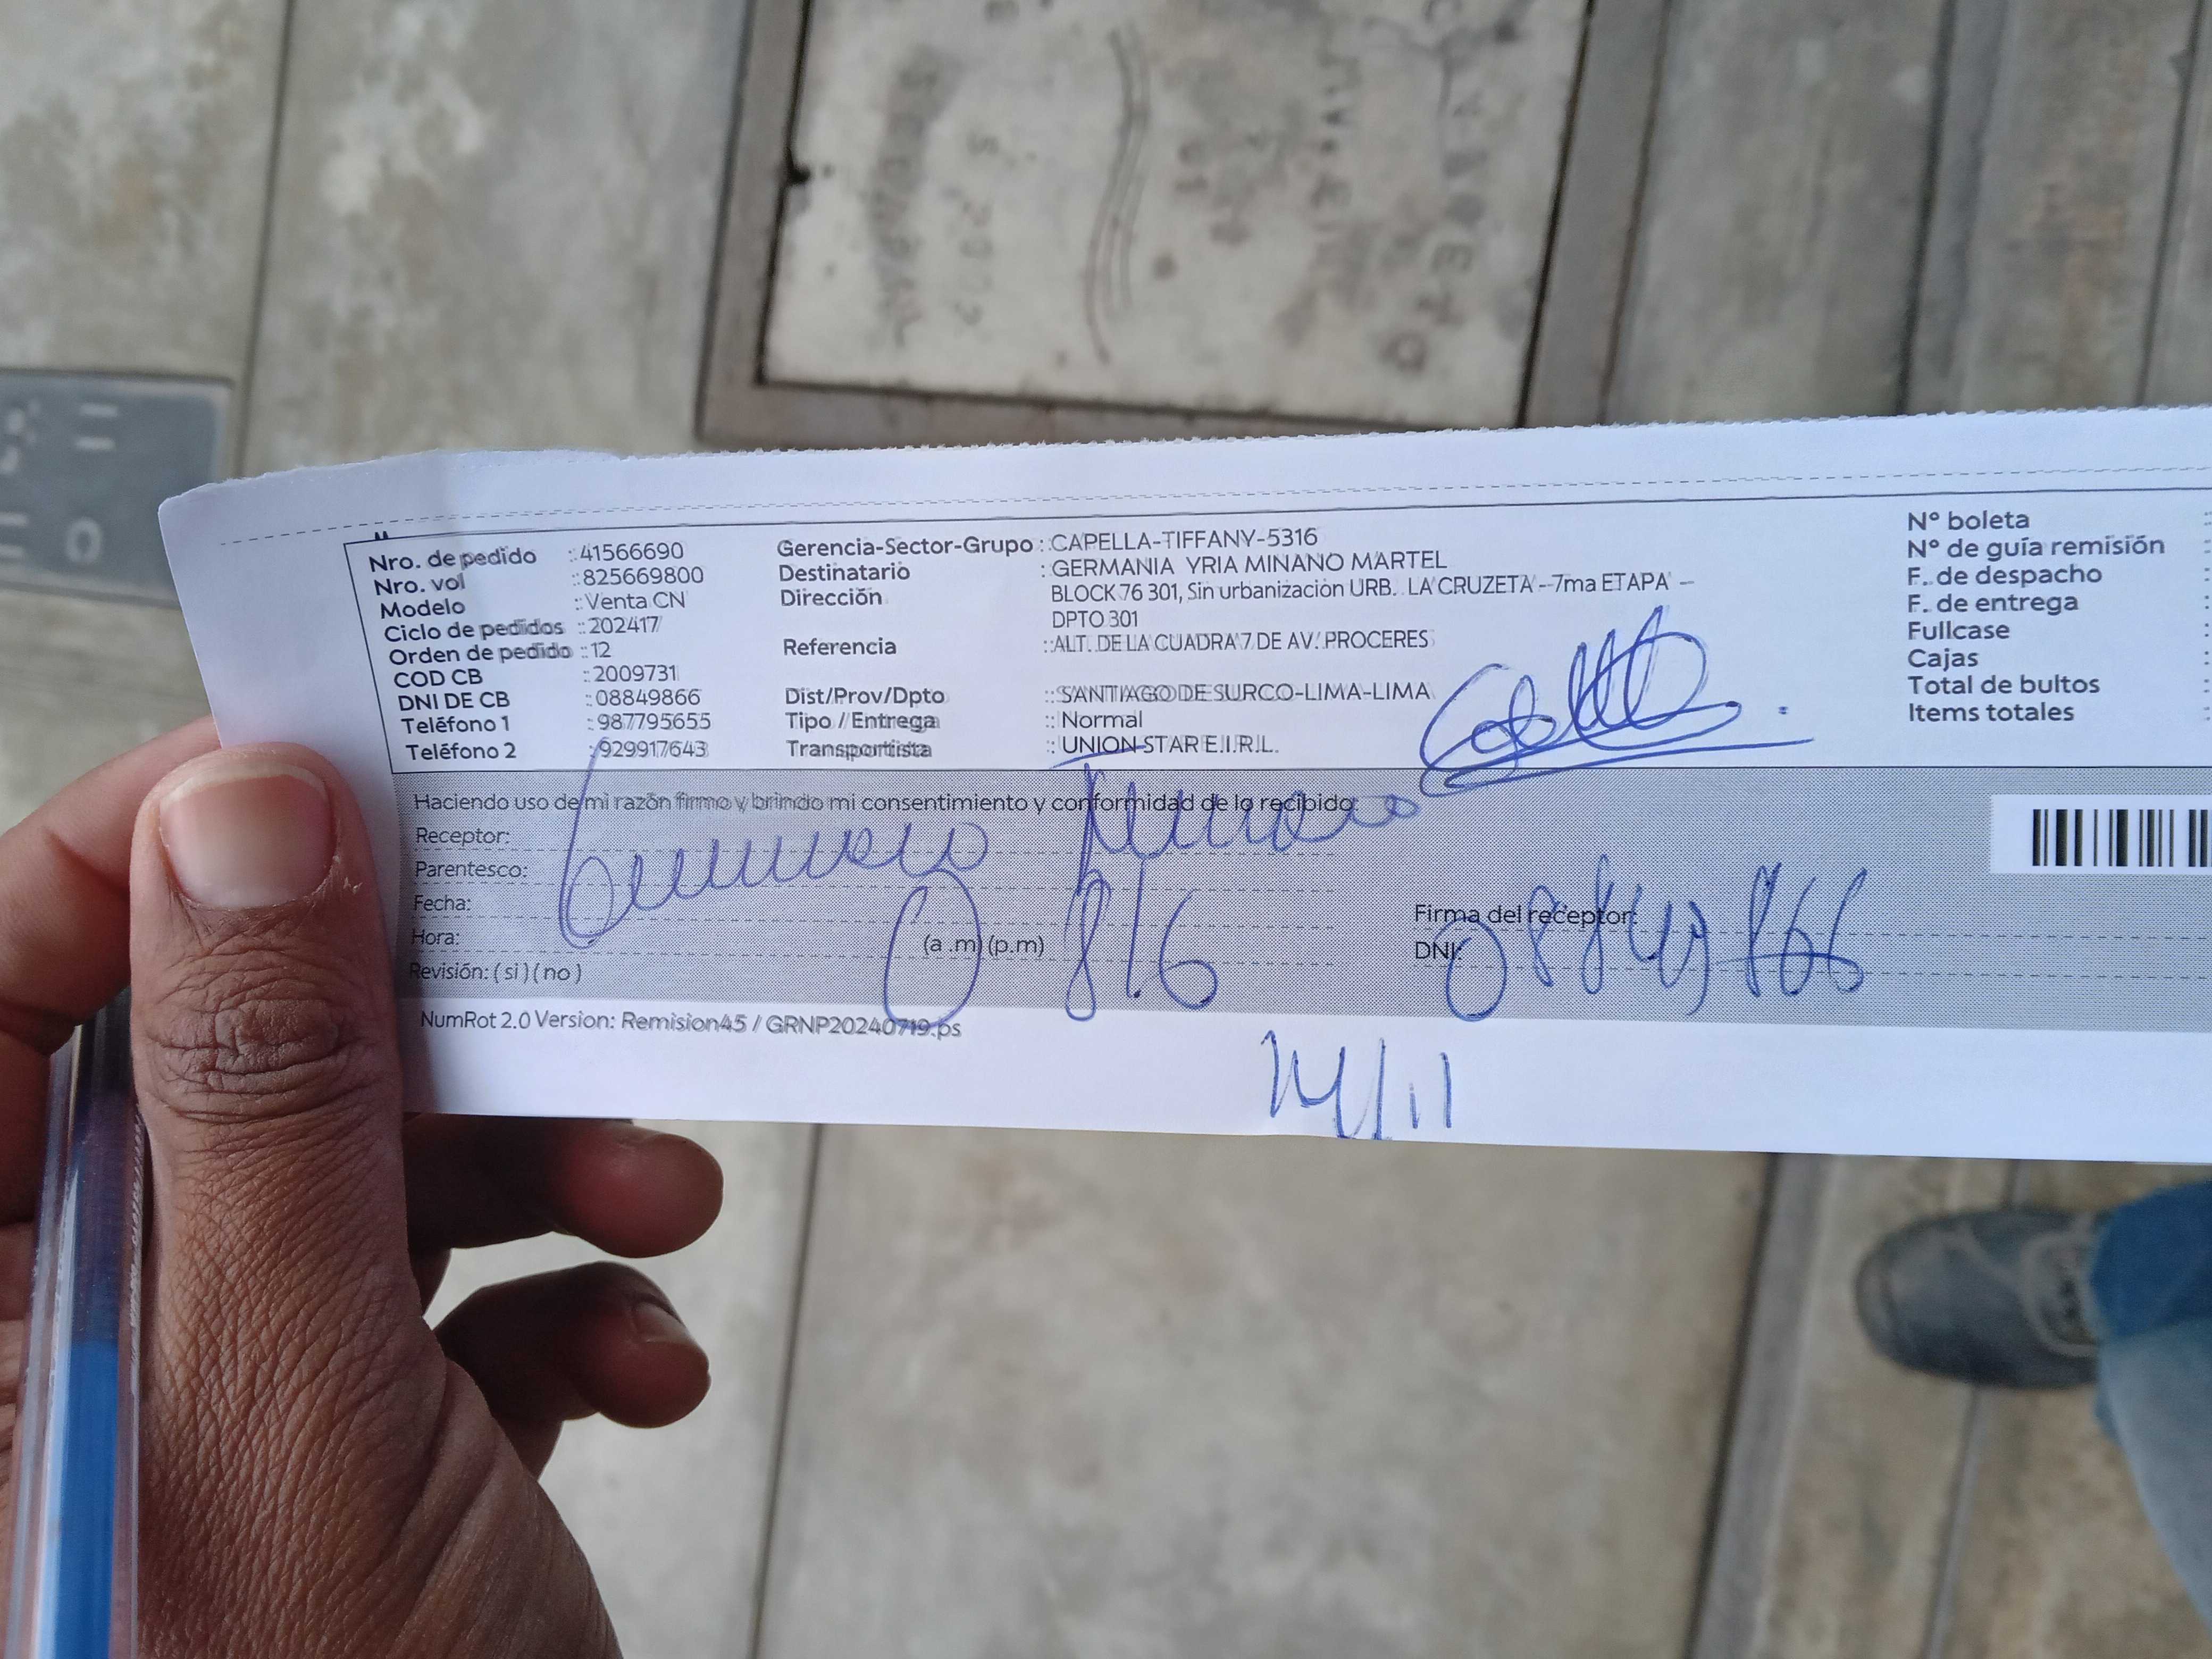 Nro. de pedido : 41566690
Nro. vol : 825669800
Modelo : Venta CN
Ciclo de pedidos : 202417
Orden de pedido : 12
COD CB : 2009731
DNI DE CB : 08849866
Teléfono 1 : 987795655
Teléfono 2 : 929917643
Gerencia-Sector-Grupo : CAPELLA-TIFFANY-5316
Destinatario : GERMANIA YRIA MINANO MARTEL
Dirección BLOCK 76 301, Sin urbanizacion URB. LA CRUZETA - 7ma ETAPA -
DPTO 301
Referencia : ALT. DE LA CUADRA 7 DE AV. PROCERES
Dist/Prov/Dpto : SANTIAGO DE SURCO-LIMA-LIMA
Tipo / Entrega : Normal
Transportista : UNION STAR E.I.R.L.
N° boleta :
N° de guía remisión :
F. de despacho :
F. de entrega :
Fullcase :
Cajas :
Total de bultos :
Items totales :
Haciendo uso de mi razón firmo y brindo mi consentimiento y conformidad de lo recibido:
Receptor:
Parentesco:
Fecha:
Hora: (a .m) (p.m)
Revisión: ( si ) ( no )
Firma del receptor:
DNI: 08849866
NumRot 2.0 Version: Remision45 / GRNP20240719.ps
14/11